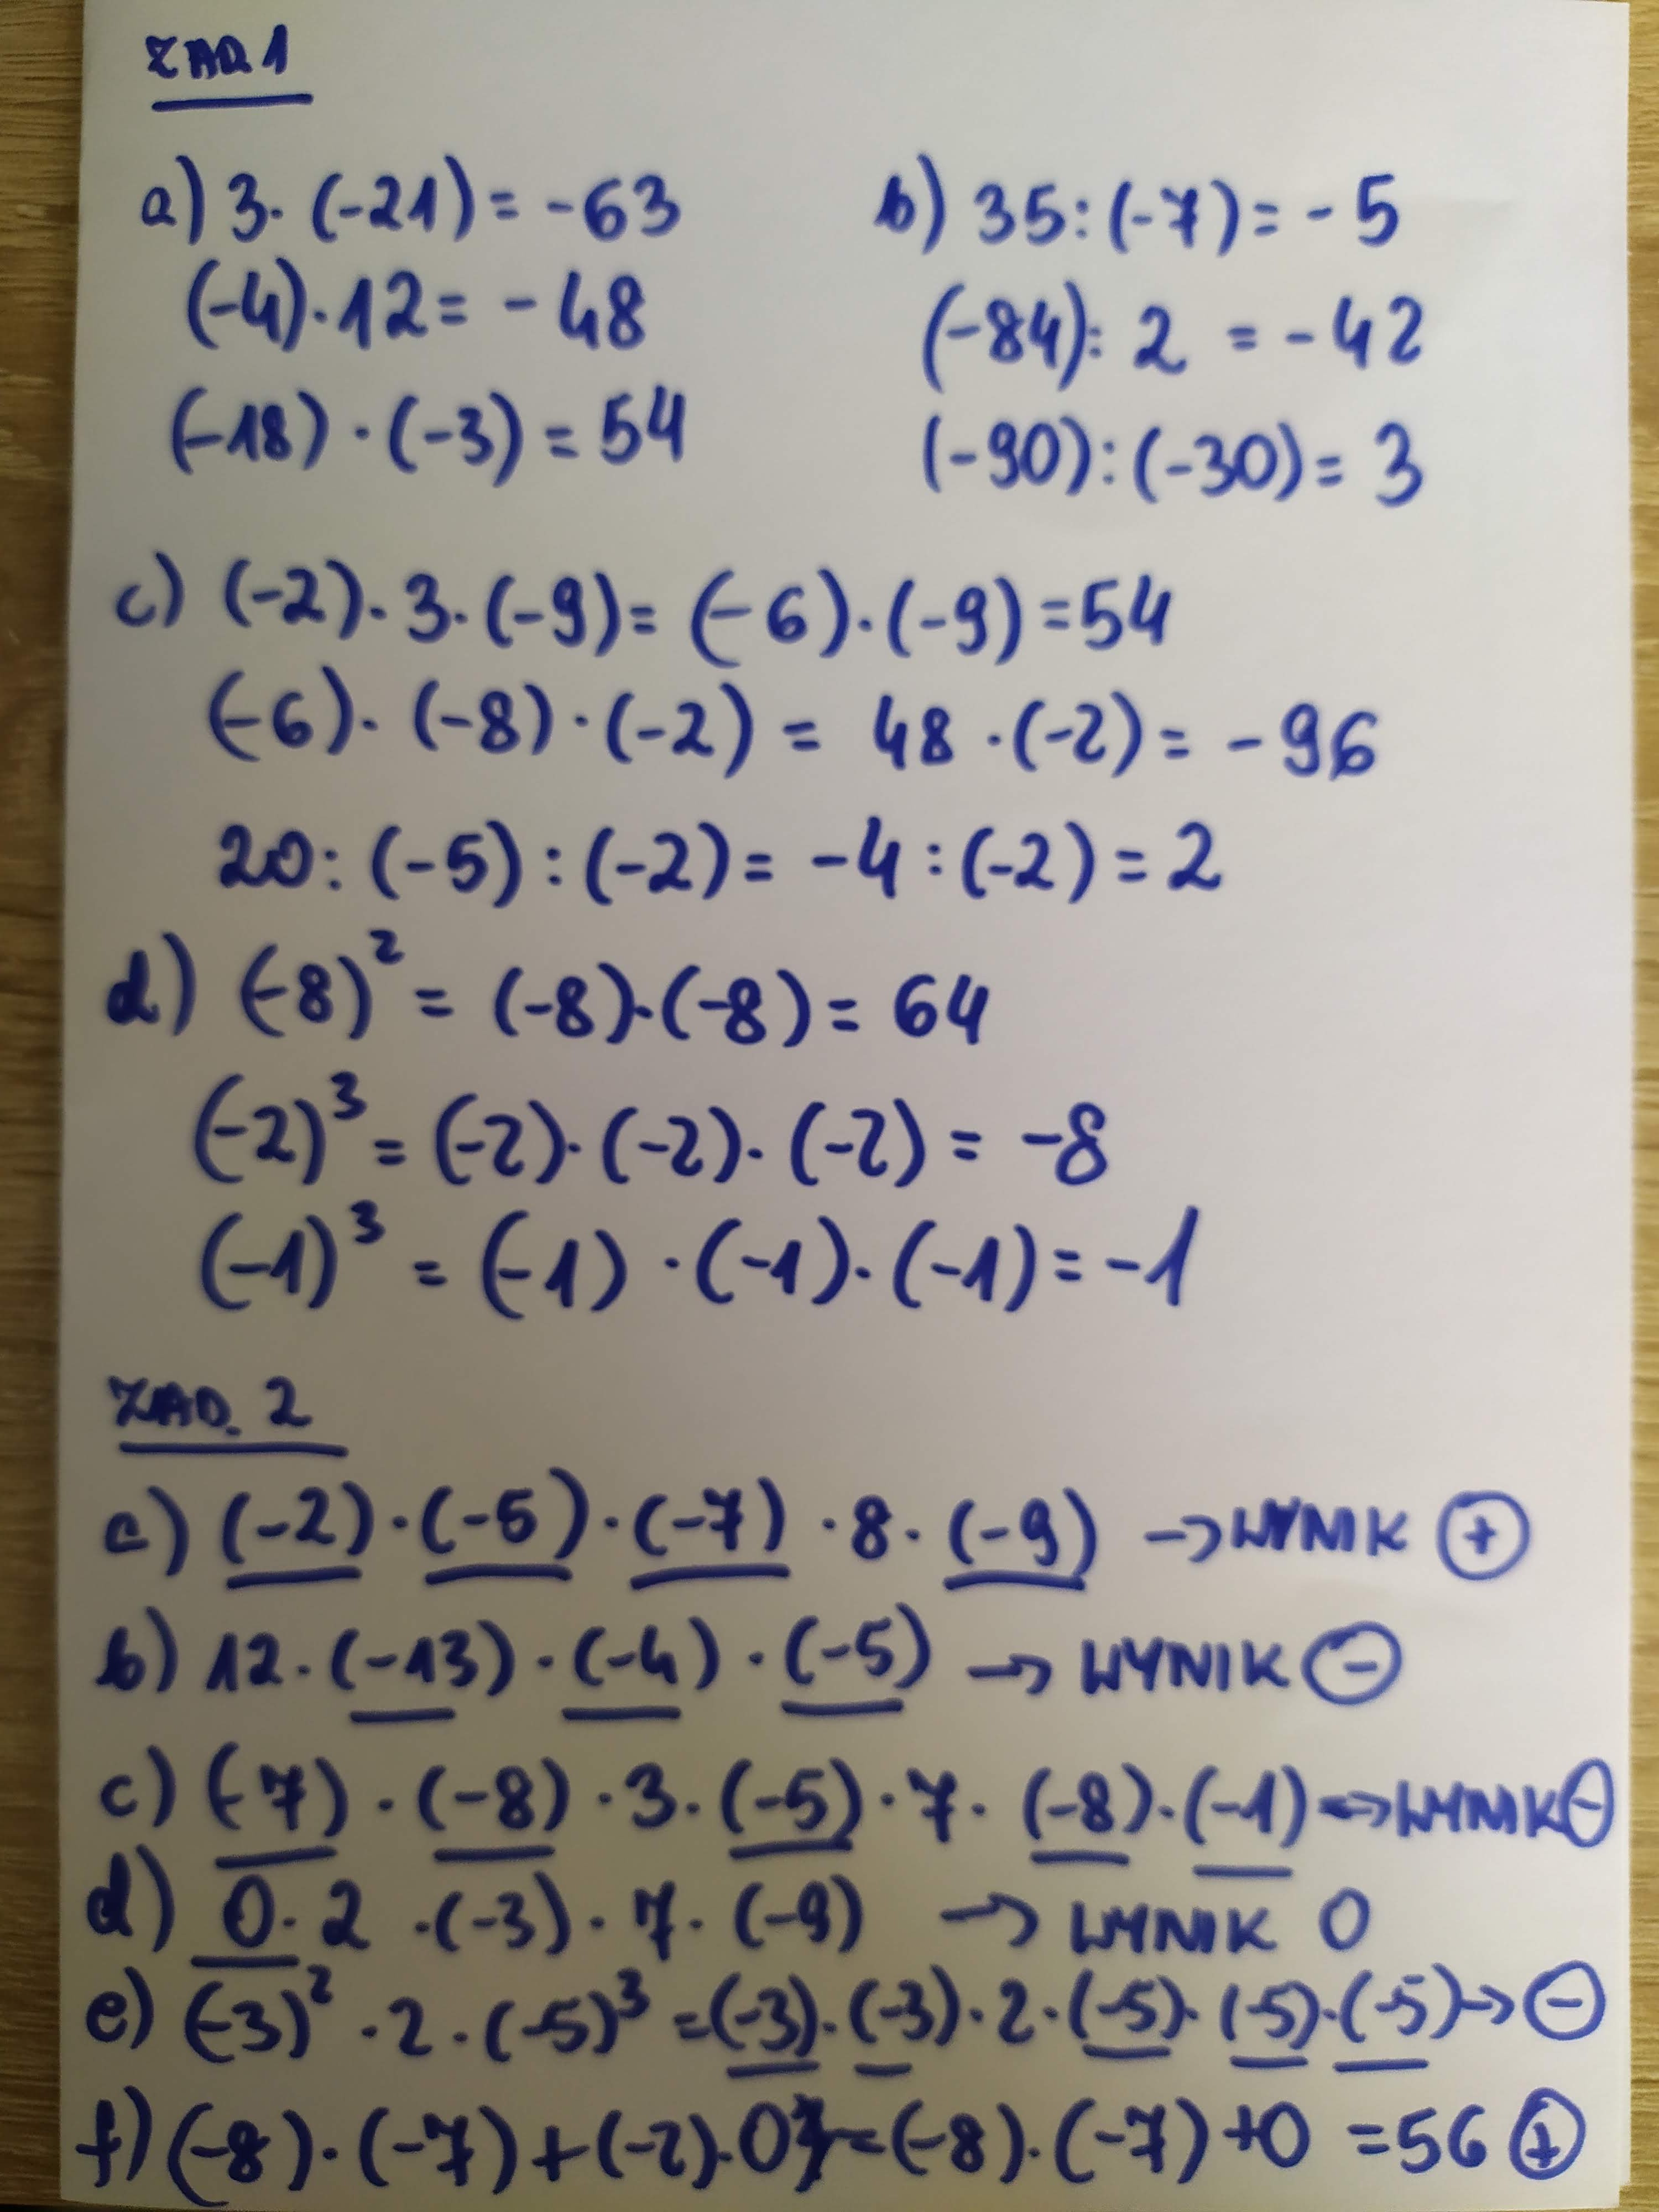 ZAD 1
a) 3·(-21)= -63
b) 35:(-7)= -5
(-4)·12= -48
(-84): 2 = -42
(-18)·(-3)=54
(-90):(-30)=3
c) (-2)·3·(-9)= (-6)·(-9)=54
(-6)·(-8)·(-2)= 48·(-2)= -96
20:(-5):(-2)= -4:(-2)=2
d) (-8)² = (-8)·(-8)= 64
(-2)³ = (-2)·(-2)·(-2)= -8
(-1)³ = (-1)·(-1)·(-1)= -1
ZAD. 2
a) (-2)·(-5)·(-7)·8·(-9) → WYNIK ⊕
b) 12·(-13)·(-4)·(-5) → WYNIK ⊖
c) (-7)·(-8)·3·(-5)·7·(-8)·(-1) → WYNIK ⊖
d) 0·2·(-3)·7·(-9) → WYNIK 0
e) (-3)²·2·(-5)³ =(-3)·(-3)·2·(-5)·(-5)·(-5) → ⊖
f) (-8)·(-7)+(-2)·0 =(-8)·(-7)+0 =56 ⊕